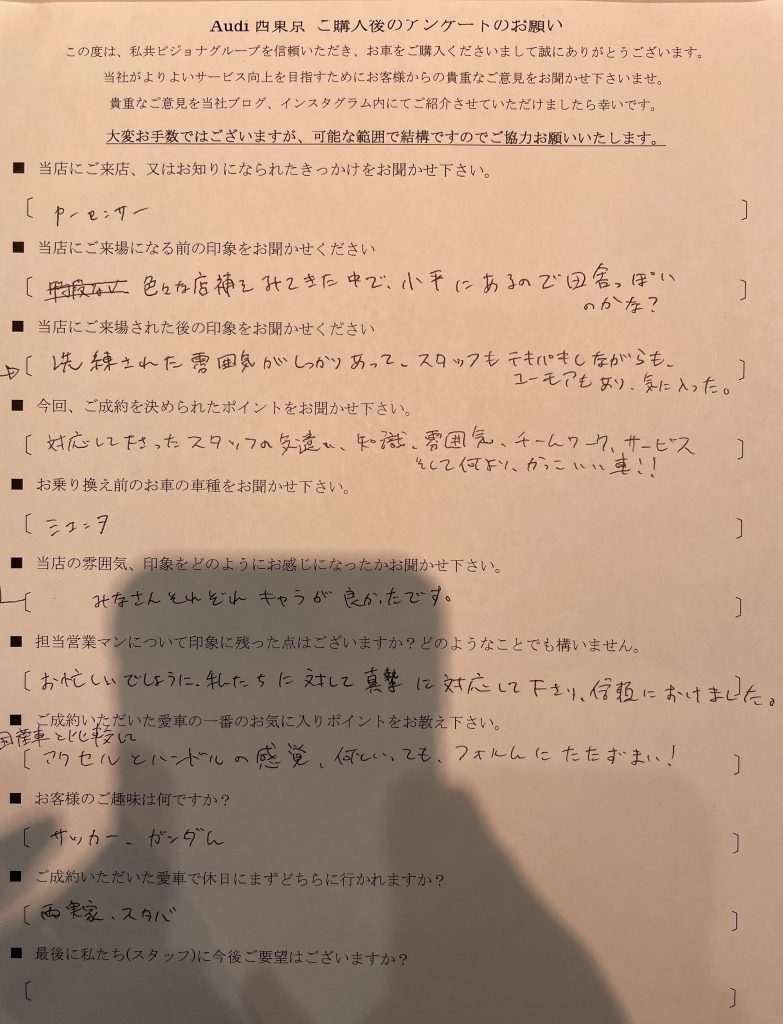 Audi 西東京 ご購入後のアンケートのお願い
この度は、私共ビジョナグループを信頼いただき、お車をご購入くださいまして誠にありがとうございます。
当社がよりよいサービス向上を目指すためにお客様からの貴重なご意見をお聞かせ下さいませ。
貴重なご意見を当社ブログ、インスタグラム内にてご紹介させていただけましたら幸いです。
大変お手数ではございますが、可能な範囲で結構ですのでご協力お願いいたします。
■ 当店にご来店、又はお知りになられたきっかけをお聞かせ下さい。
[ カーセンサー ]
■ 当店にご来場になる前の印象をお聞かせください
[ 色々な店補をみてきた中で、小平にあるので田舎っぽい
のかな? ]
■ 当店にご来場された後の印象をお聞かせください
[ 洗練された雰囲気がしっかりあって、スタッフもテキパキしながらも、
ユーモアもあり、気に入った。 ]
■ 今回、ご成約を決められたポイントをお聞かせ下さい。
[ 対応して下さったスタッフの気遣い、知識、雰囲気、チームワーク、サービス
そして何より、かっこいい車!! ]
■ お乗り換え前のお車の車種をお聞かせ下さい。
[ シエンタ ]
■ 当店の雰囲気、印象をどのようにお感じになったかお聞かせ下さい。
[ みなさんそれぞれキャラが良かったです。 ]
■ 担当営業マンについて印象に残った点はございますか?どのようなことでも構いません。
[ お忙しいでしょうに、私たちに対して真摯に対応して下さり、信頼におけました。 ]
■ ご成約いただいた愛車の一番のお気に入りポイントをお教え下さい。
国産車と比較して
[ アクセルとハンドルの感覚、何といっても、フォルムにたたずまい! ]
■ お客様のご趣味は何ですか?
[ サッカー、ガンダム ]
■ ご成約いただいた愛車で休日にまずどちらに行かれますか?
[ 両実家、スタバ ]
■ 最後に私たち(スタッフ)に今後ご要望はございますか?
[ ]